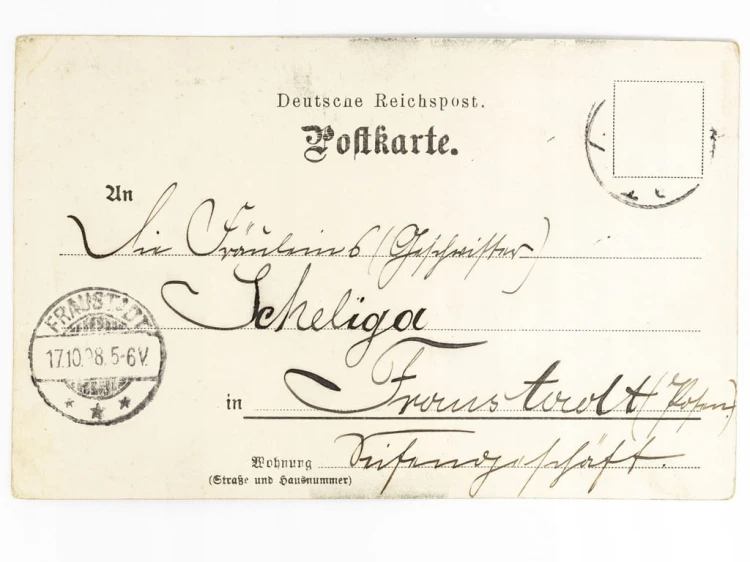 Deutsche Reichspost.
Postkarte.
An
Die Fräuleins (Geschwister)
Scheliga
in Fraustadt (Posen)
Wohnung Seifengeschäft.
(Straße und Hausnummer)
FRAUSTADT
17.10.98.5-6V.